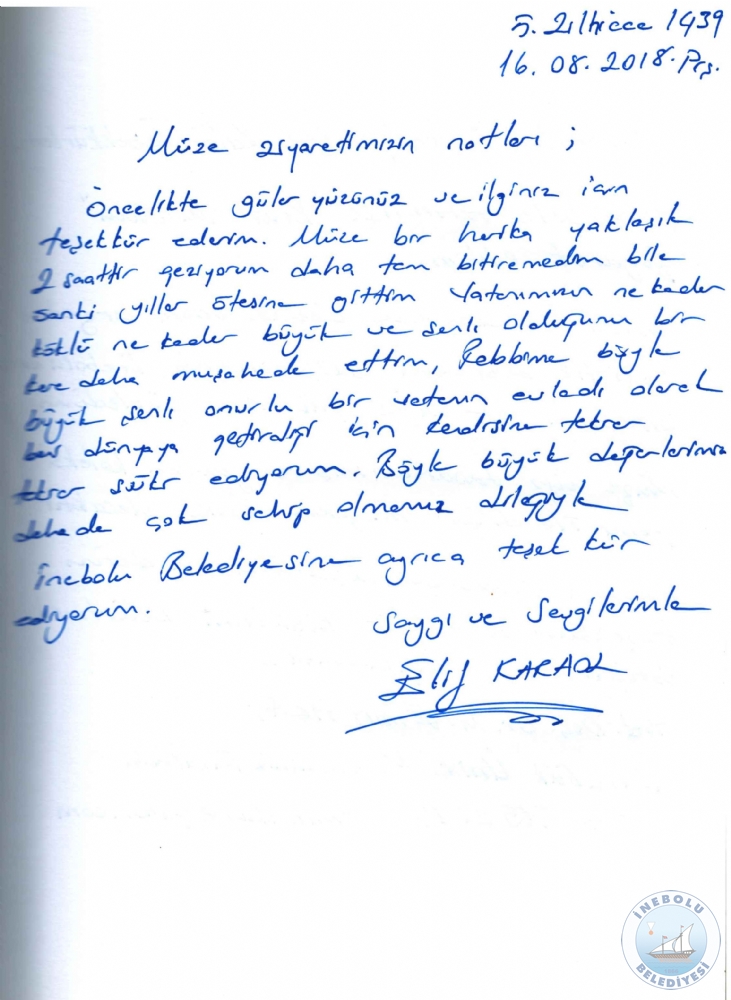 5. Zilhicce 1439
16. 08. 2018. Prş.
Müze ziyaretimizin notları ;
Öncelikte güler yüzünüz ve ilginiz için
teşekkür ederim. Müze bir harika yaklaşık
2 saattir geziyorum daha tam bitiremedim bile
sanki yıllar ötesine gittim Vatanımızın ne kadar
köklü ne kadar büyük ve şanlı olduğunu bir
kere daha muşahede ettim, Rabbime böyle
büyük şanlı onurlu bir vatanın evladı olarak
beni dünyaya getirdiği için kendisine tekrar
tekrar şükr ediyorum. Böyle büyük değerlerimize
daha da çok sahip olmamız dileğiyle
İnebolu Belediyesine ayrıca teşekkür
ediyorum.
Saygı ve Sevgilerimle
Elif
İNEBOLU
BELEDİYESİ